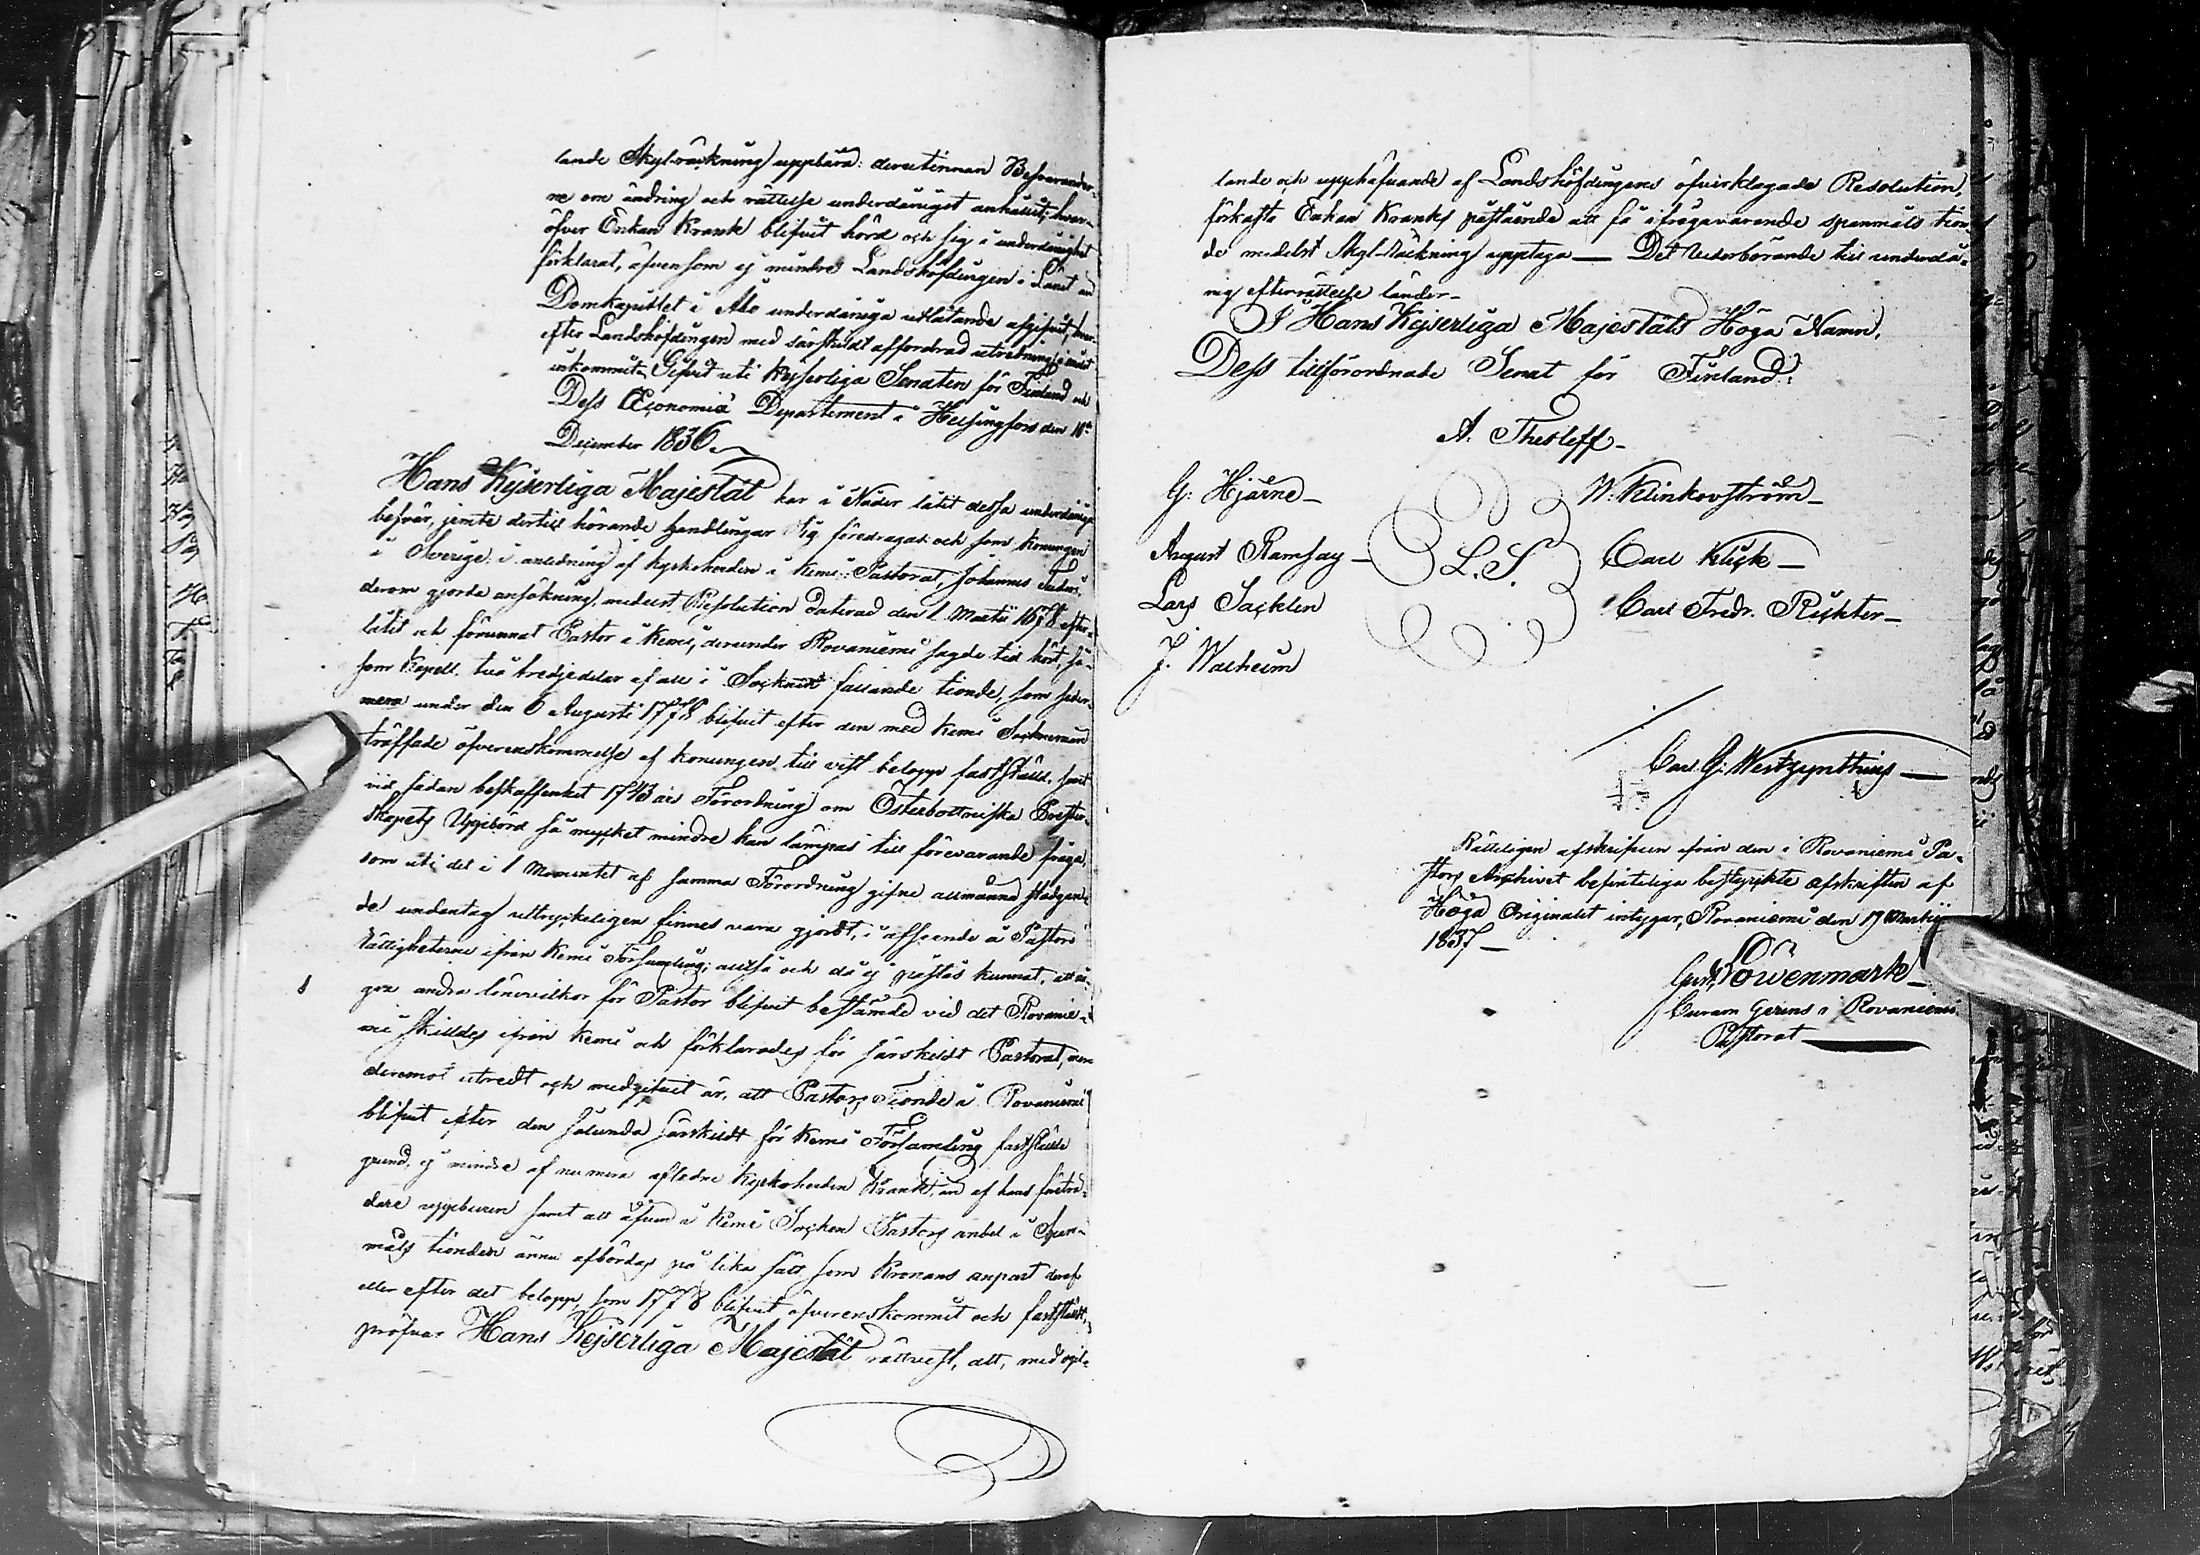 lande Skyl-räkning uppbära: derutinnan Besvärander-
ne om ändring och rättelse underdånigst anhållit; hvar-
öfver Enkan Krank blifvit hörd och sig i underdånighet
förklarat, äfvensom ej mindre Landshöfdingen i Länet än
Domkapitlet i Åbo underdåniga utlåtande afgifvit, hvar-
efter Landshöfdingen med särskildt affordrad utredning
inkommit. Gifvit uti Kejserliga Senaten för Finland och
Dess Œconomiæ Departement i Helsingfors den
December 1836.
Hans Kejserliga Majestät har i Nåder låtit dessa underdåniga
besvär, jemte dertill hörande handlingar Sig föredragas: och som Konungen
i Sverige i anledning af kyrkoherden i Kemi Pastorat, Johannes
derom gjorde ansökning, medelst Resolution daterad den 1 Martii 1678 efter-
låtit och förunnat Pastor i Kemi, derunder Rovaniemi sagde tid hört, så-
som Kapell, två tredjedelar af all i Socknen fallande tionde, som seder-
mera under den 6 Augusti 1778 blifvit efter den med Kemi Sockneman
träffade öfverenskommelse af Konungen till visst belopp fastställd, samt
vid sådan beskaffenhet 1743 års Förordning om Österbottniska Prester-
skapets Uppbörd så mycket mindre kan lämpas till förevarande fråga,
som uti det i 1 Momentet af samma Förordning gifne allmänna stadgan-
de undantag uttryckeligen finnes vara gjordt, i afseende å Pastors
rättigheterne ifrån Kemi Församling; alltså och då ej påstås kunnat, att nå-
gra andra lönevilkor för Pastor blifvit bestämde vid det Rovanie-
mi skildes ifrån Kemi och förklarades för särskildt Pastorat, men
deremot utredt och medgifvet är, att Pastors Tionde i Rovaniemi
blifvit efter den sålunda särskildt för Kemi Församling fastställde
grund, ej mindre af numera aflidne Kyrkoherden Krank, än af hans företrä-
dare uppburen samt att äfven i Kemi Socken Pastors andel i Span-
måls tionden ännu afbördas på lika sätt som Kronans anpart deraf
eller efter det belopp, som 1778 blifvit öfverenskommit och fastställt,
pröfvar Hans Kejserliga Majestät rättvist, att, med ogil-
lande och upphäfvande af Landshöfdingens öfverklagade Resolution,
förkasta Enkan Kranks påstående att få ifrågavarande spanmåls tion-
de medelst Skyl-räkning upptaga — Det Vederbörande till underdå-
nig efterrättelse länder —
I Hans Kejserliga Majestäts Höga Namn,
Dess tillförordnade Senat för Finland:
A. Thesleff —
G: Hjärne —
W. Klinkovström —
August Ramsay —
L. S.
Carl Klick —
Lars Sacklen
Carl Fredr. Richter —
J. Walheim
Carl G: Westzynthius —
Rätteligen afskrifven ifrån den i Rovaniemi Pa-
stors Archivet befinteliga bestyrkte afskriften af
Höga Originalet intygar, Rovaniemi den 17 Martii
1837 —
Gust. Löwenmark —
Curam Gerens i Rovaniemi
Pastorat —